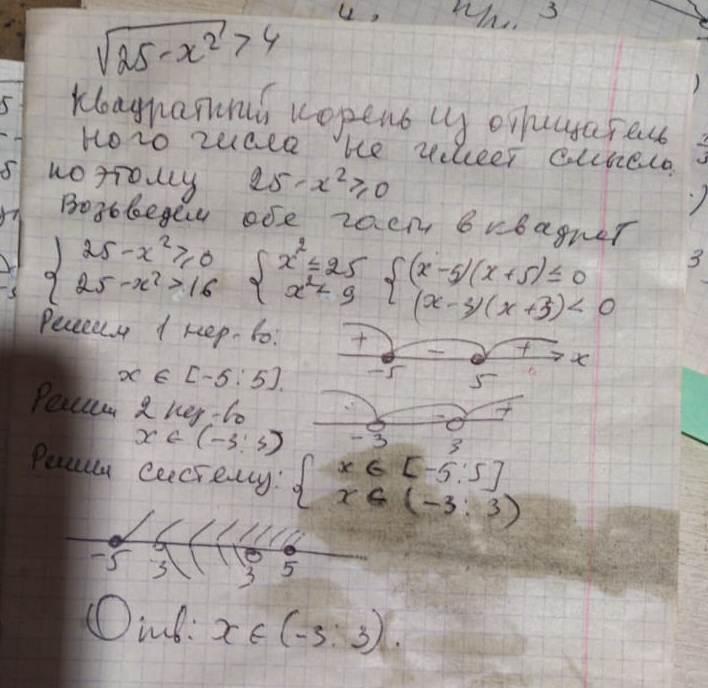 4. Пр. 3
√25-x² > 4
Квадратный корень из отрицатель
ного числа не имеет смысла.
поэтому 25-x² ≥ 0
Возьведем обе части в квадрат
{ 25-x² ≥ 0 { x² ≤ 25 { (x-5)(x+5) ≤ 0
{ 25-x² > 16 { x² < 9 { (x-3)(x+3) < 0
Решим 1 нер-во: + - + x
-5 5
x ∈ [-5:5].
Решим 2 нер-во - +
-3 3
x ∈ (-3:3)
Решим систему: { x ∈ [-5:5]
{ x ∈ (-3:3)
-5 3 3 5
Отв: x ∈ (-3:3).